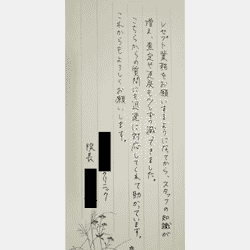 レセプト業務をお願いするようになってから、スタッフの知識が
増え、査定や返戻も少しずつ減ってきました。
こちらからの質問にも迅速に対応してくれて助かっています。
これからもよろしくお願いします。
クリニック
院長